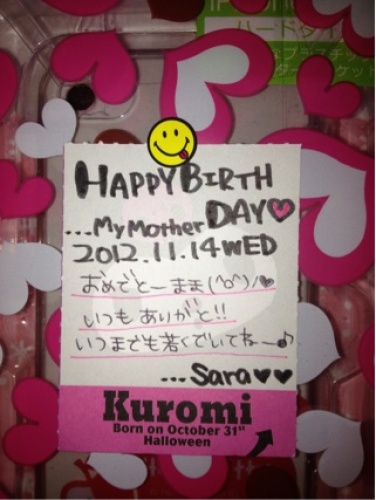 ハードタイ
HAPPY BIRTH
DAY♡
...My Mother
2012.11.14 WED
おめでとーまま(^o^)/♥
いつもありがと!!
いつまでも若くでいてねー♪
...Sara♥♥
Kuromi
Born on October 31st
Halloween